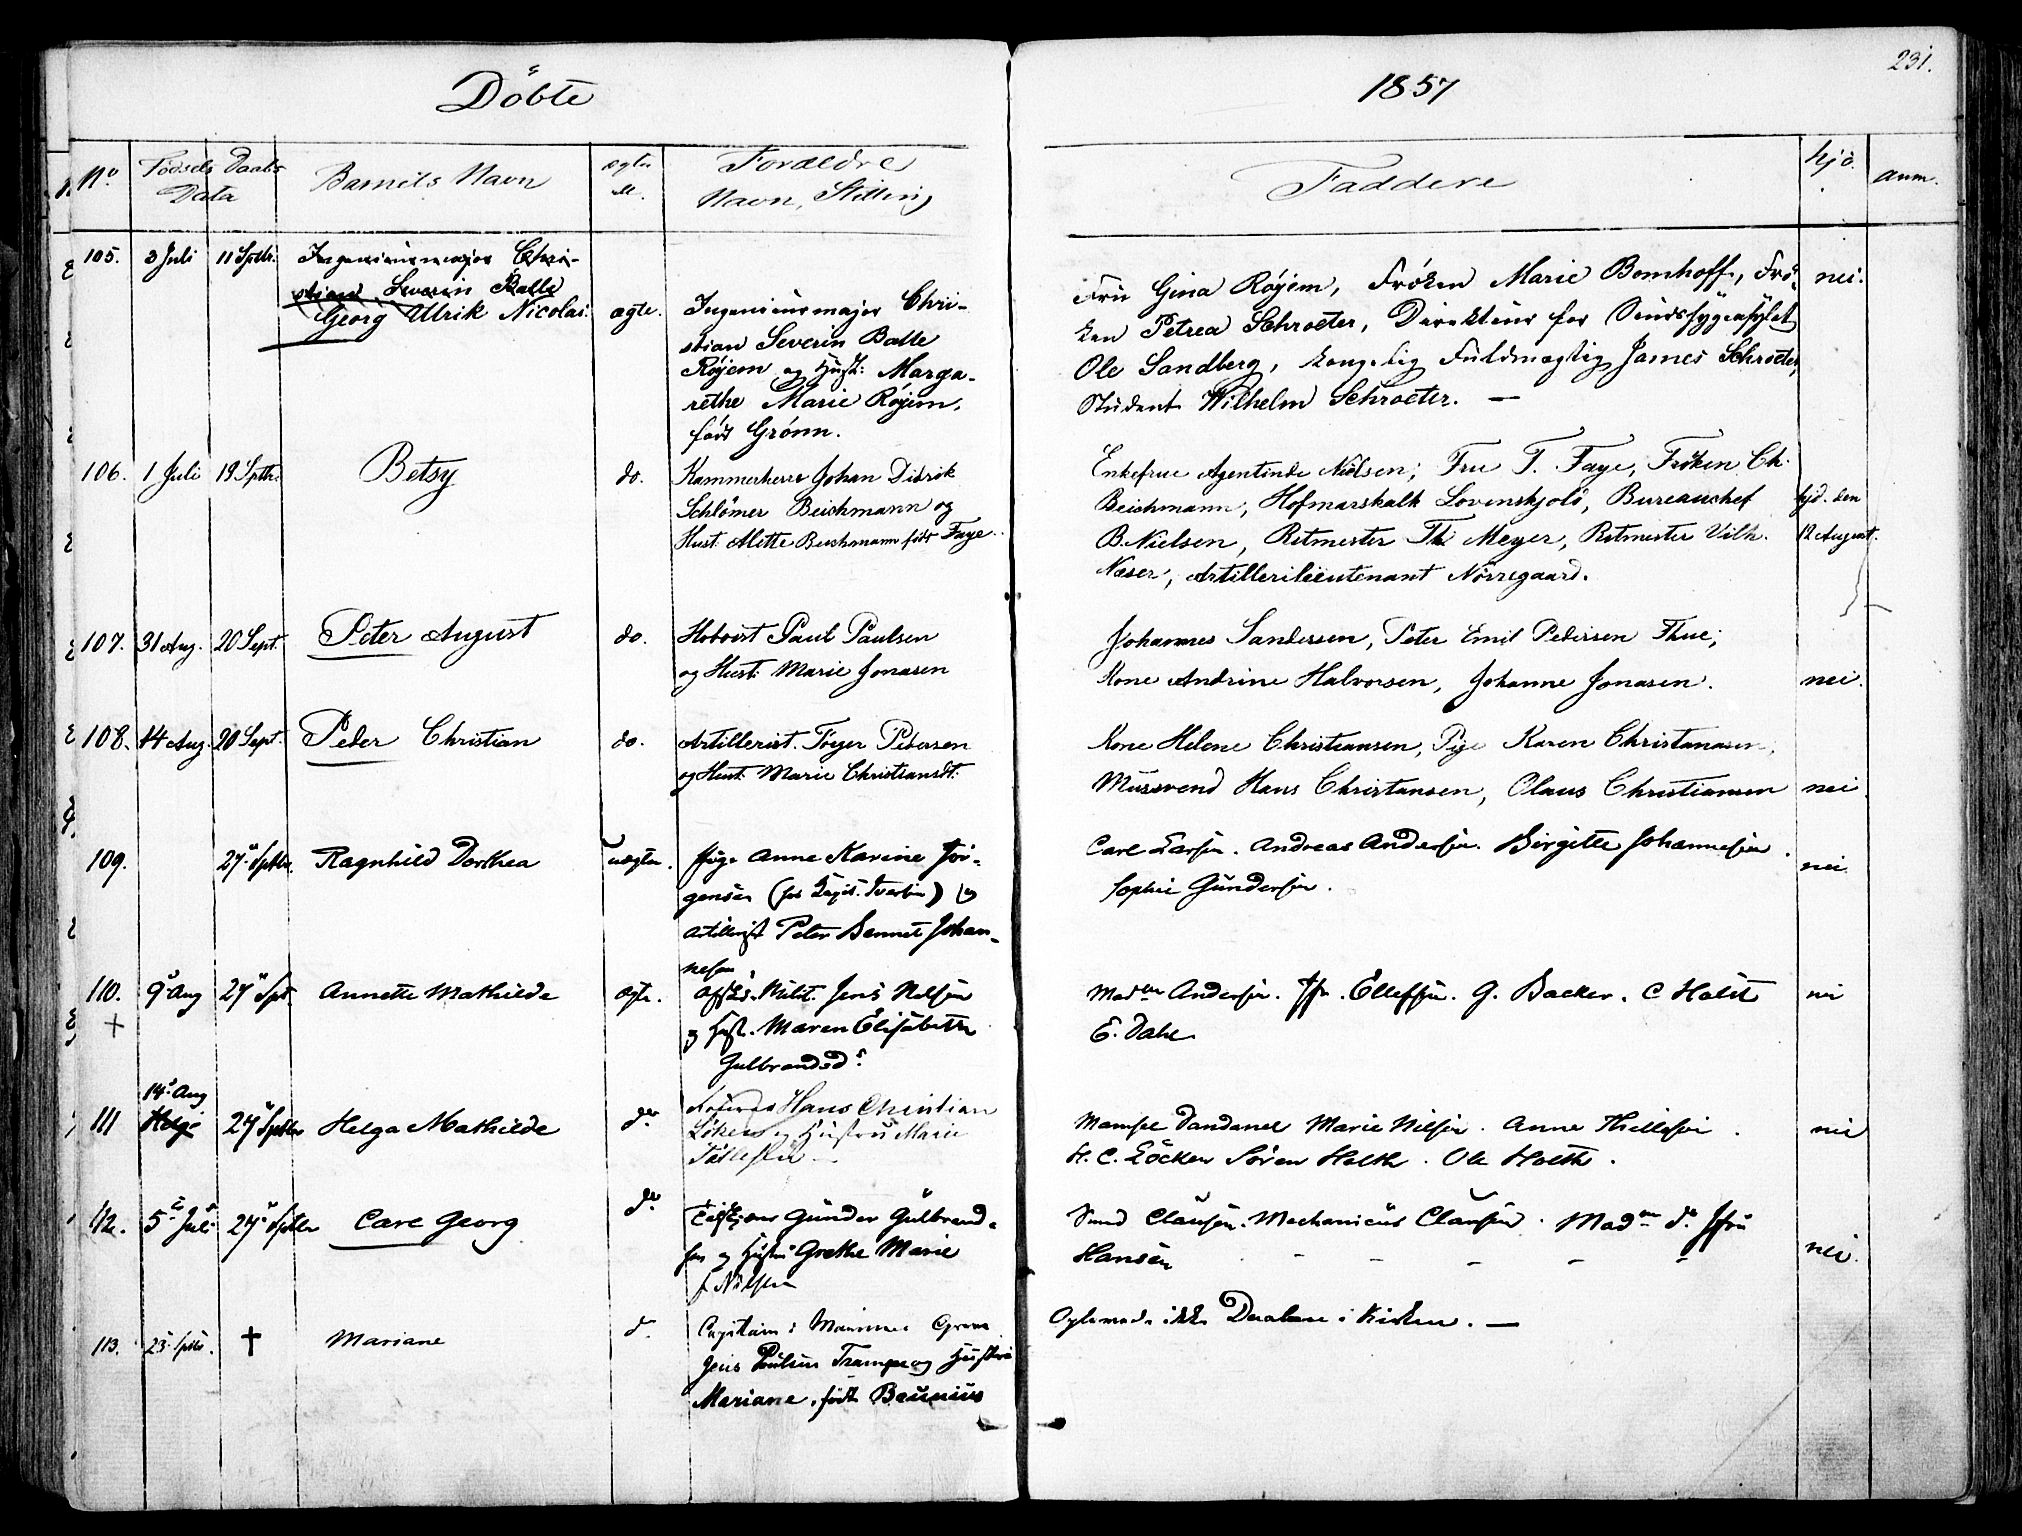 231.
Döbte
1857
No
Fødsels Daabs
Data
Barnets Navn
ægte
Forældre
Navn, Stilling
Faddere
hjd.
anm.
105. 3 Juli 11 Septb. Ingenieurmajor Chri-
stian Severin Balle
Georg Ulrik Nicolai. ægte.
Ingenieurmajor Chri-
stian Severin Balle
Røyem og Hust: Marga-
rethe Marie Røyem,
født Grönn.
Fru Gina Røyem, Frøken Marie Bomhoff, Frö-
ken Petrea Schroeter, Direkteur for Sindssygeasylet
Ole Sandberg, kongelig Fuldmægtig James Schroeter,
Student Wilhelm Schroeter. —
nei.
106. 1 Juli 19 Septb. Betsy do.
Kammerherre Johan Didrik
Schlömer Beichmann og
Hust. Alette Beichmann født Faye.
Enkefrue Agentinde Nielsen; Fru T. Faye, Frøken Ch.
Beichmann, Hofmarskalk Lovenskjold, Bureauchef
B. Nielsen, Ritmester Th Meyer, Ritmester Vilh.
Næser, Artillerilieutenant Nörregaard.
hjd. den
12 August.
107. 31 Aug. 20 Sept. Peter August do.
Hoboist Paul Paulsen
og Hust. Marie Jonasen
Johannes Sandersen, Peter Emil Pedersen Thue;
Kone Andrine Halvorsen, Johanne Jonasen.
nei.
108. 14 Aug. 20 Sept. Peder Christian do.
Artillerist Töger Pedersen
og Hust. Marie Christiansdt:
Kone Helene Christiansen, Pige Karen Christiansen,
Mursvend Hans Christansen, Olaus Christiansen
nei.
109. 27 Septbr. Ragnhild Dorthea uægte.
Pige Anne Karine Jör-
gensen
Artillerist Peter Bennet Johan-
nesen
Carl Larsen. Andreas Andersen. Birgitte Johannesen.
Sophie Gundersen.
nei
110. 9 Aug 27 Spt. Annette Mathilde ægte.
+
Jens Nelsen
og Hust. Maren Elisabeth
Gulbrandsd:
Madm Andersen. Jfr. Ellefsen. G. Backer. C Holst
E. Dahl
nei
14 Aug
111 Helge 27 Septbr Helga Mathilde do
Hans Christian
Löken og Hustru Marie
Mamsel Dandanel Marie Nilsen. Anne Thillesen.
H. C. Löcken Søren Holth. Ole Holth.
nei
112. 5 Juli 27 Septbr Carl Georg do.
Gunder Gulbrand-
sen og Hustru Grethe Marie
f. Nilsen
Smed Clausen. Mechanicus Clausen. Madm do Jfru
Hansen - - - - -
nei.
113. 23 Septbr. † Mariane d.
Capitain i Marinen
Jens Poulsen Trampe og Hustru
Mariane, født Beunius
Oplæst ikke Daaben i Kirken. —